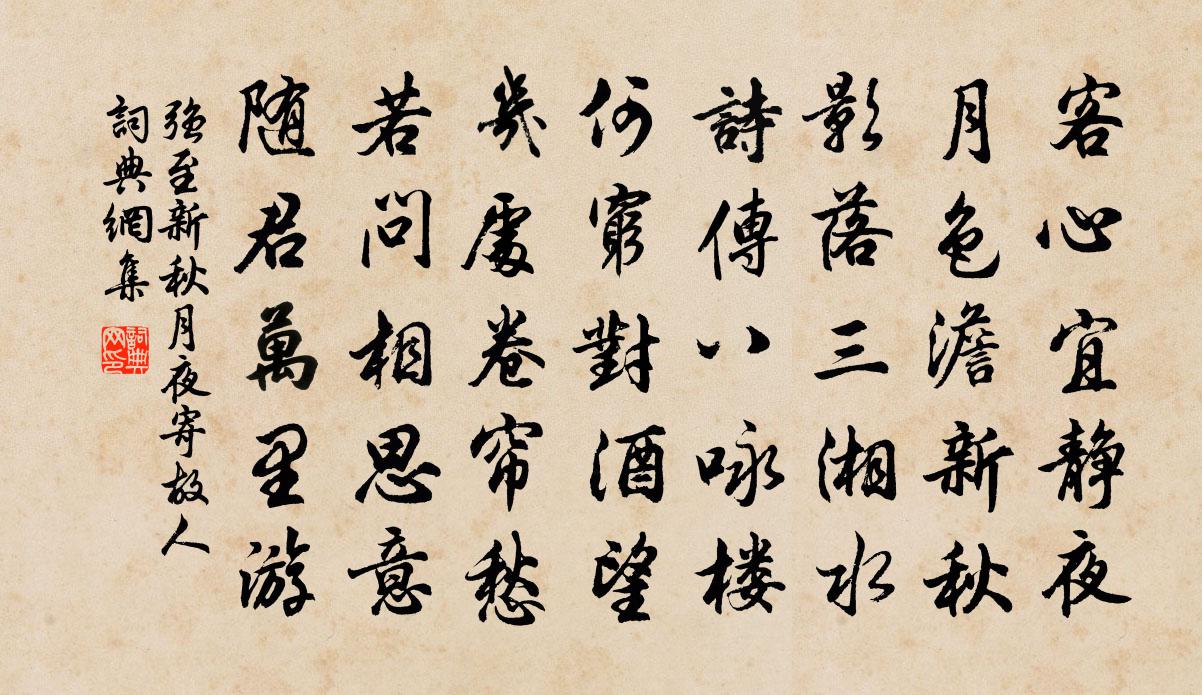 客心宜静夜
月色澹新秋
影落三湘水
詩傳八咏楼
何窮對酒望
幾處卷帘愁
若問相思意
随君萬里游
强至新秋月夜寄故人
詞典網集
詞典网印